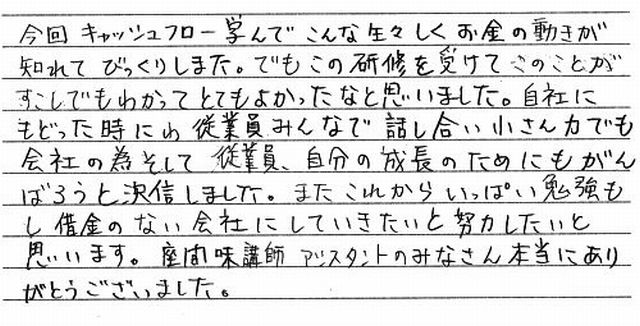 今回 キャッシュフロー学んで こんな生々しくお金の動きが
知れて びっくりしました。でもこの研修を受けて このことが
すこしでもわかってとてもよかったなと思いました。自社に
もどった時にわ 従業員みんなで 話し合い 小さん力でも
会社の為そして 従業員、自分の成長のためにもがん
ばろうと決信しました。またこれから いっぱい勉強も
し 借金のない会社にしていきたいと努力したいと
思います。座間味講師 アシスタントのみなさん本当にあり
がとうございました。